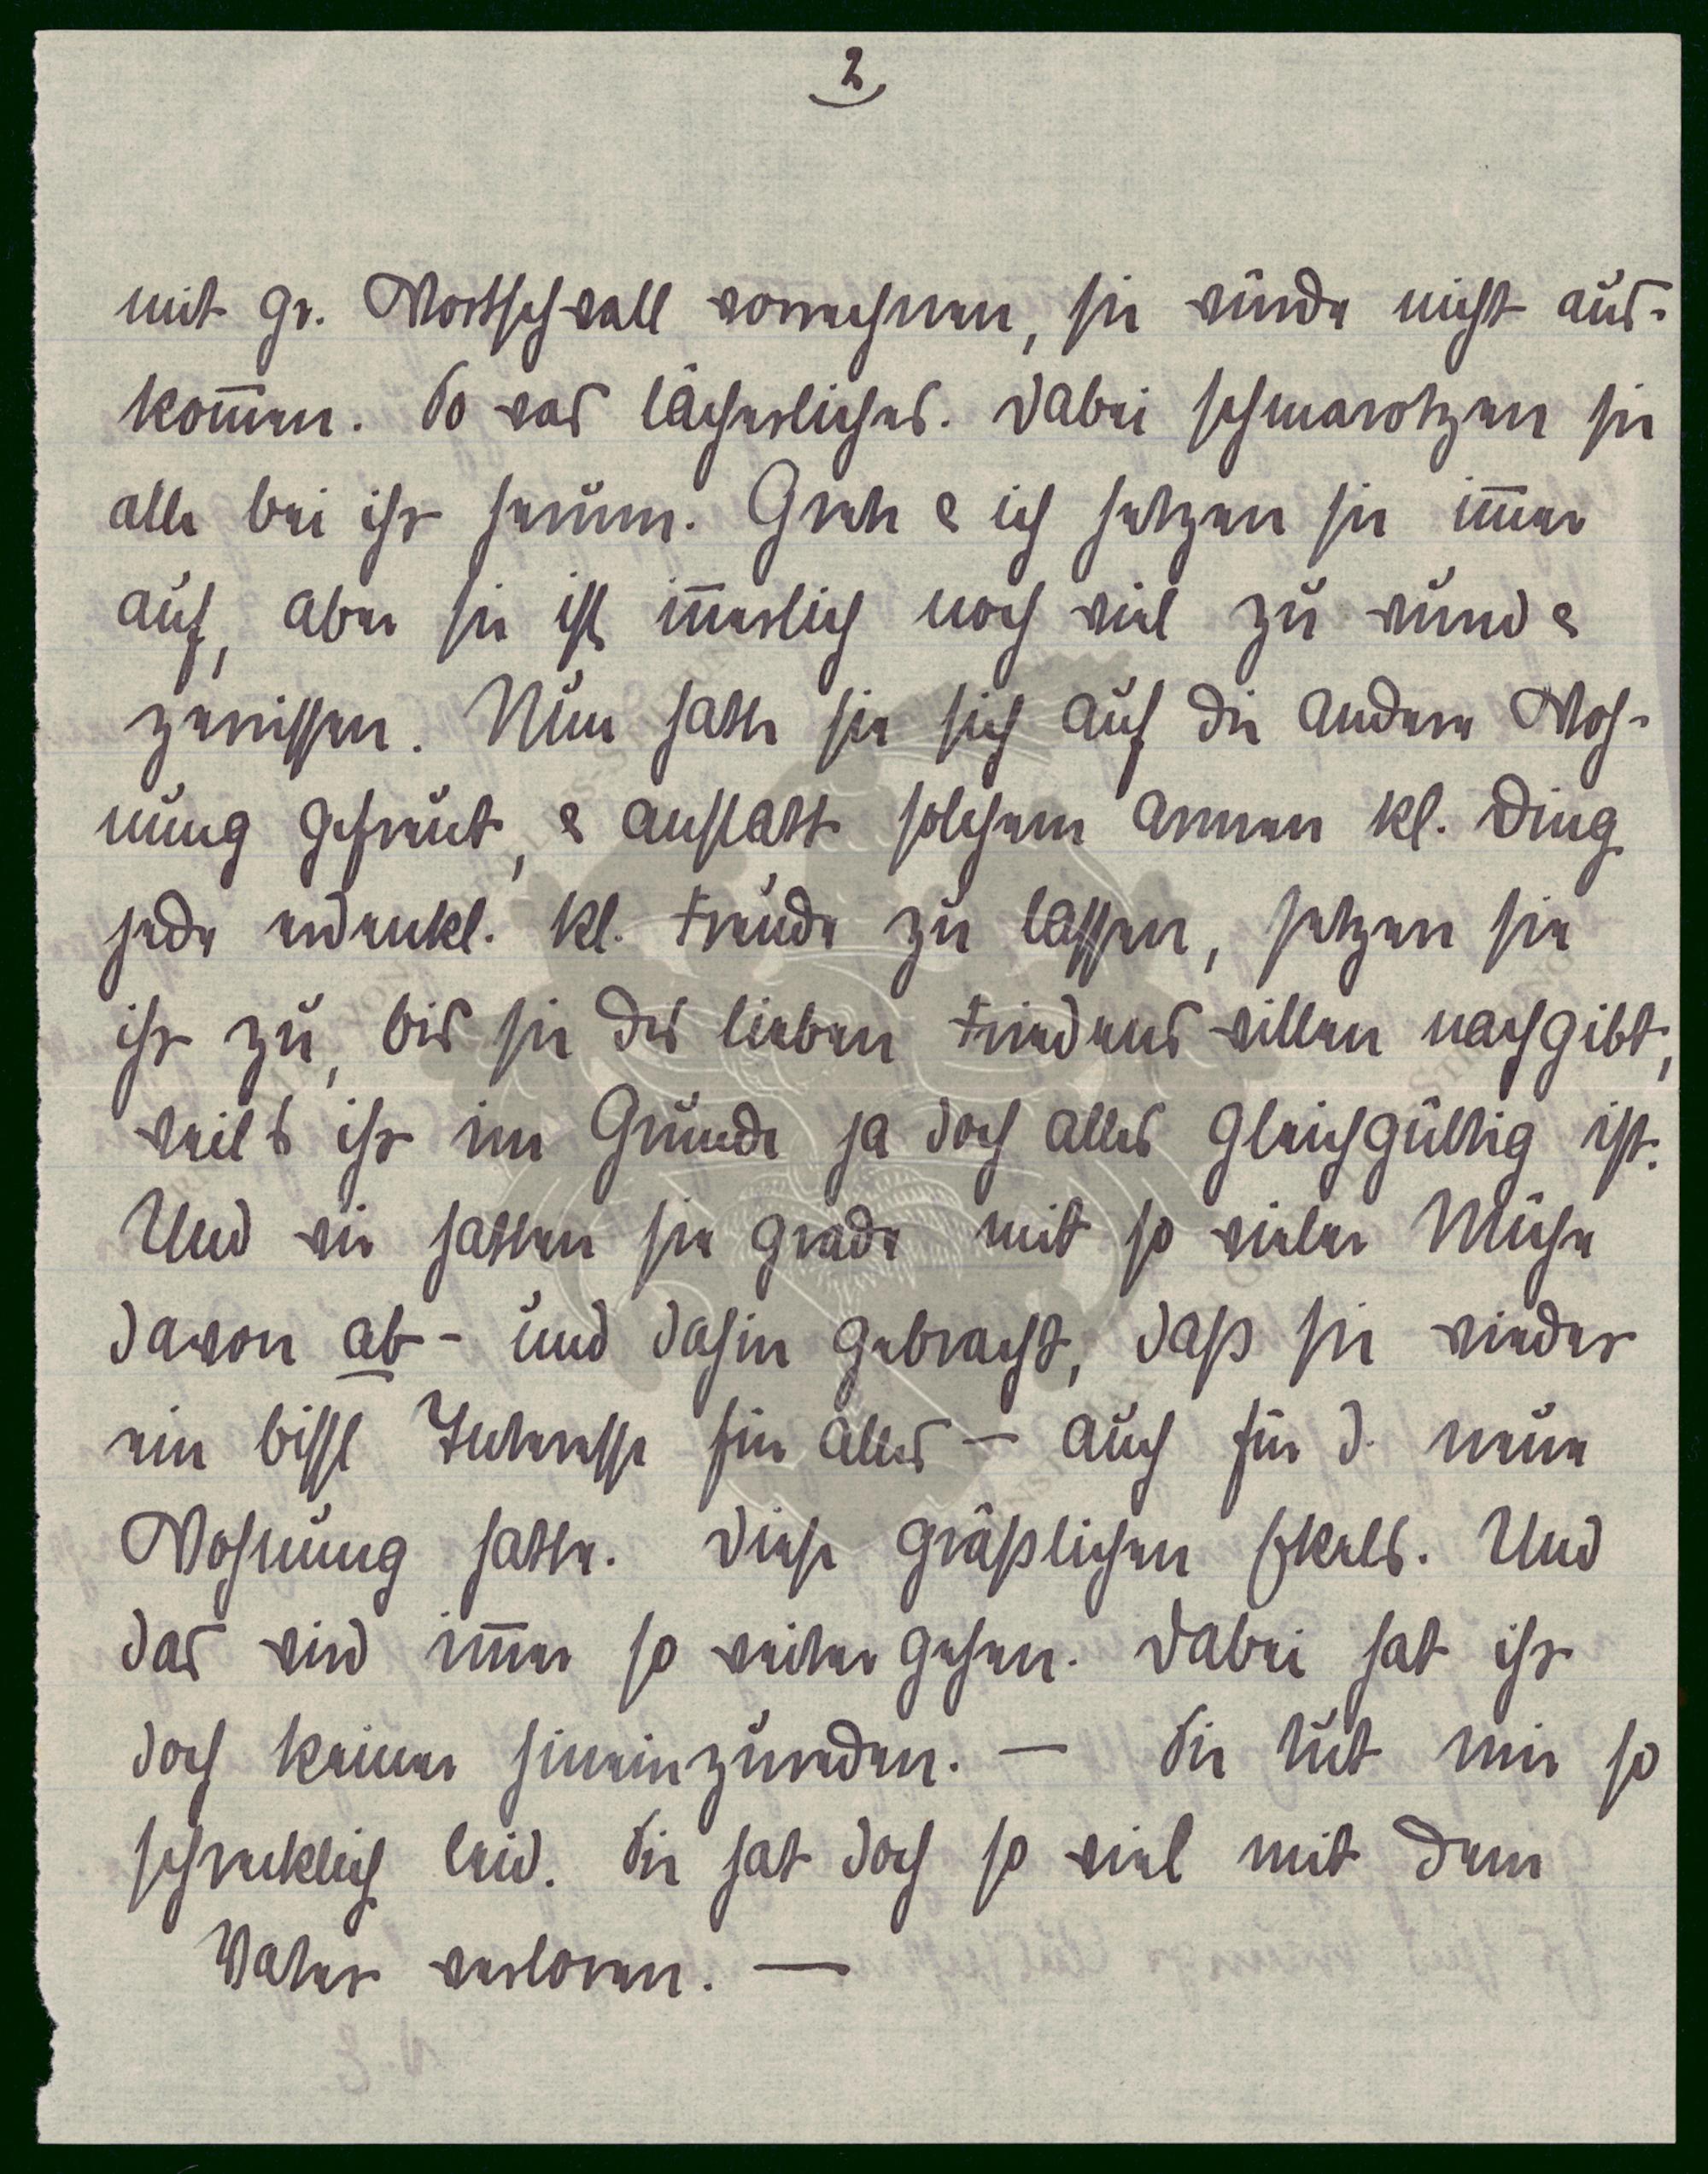 2
mit gr. Wortschwall vorrechnen, sie würde nicht aus-
kom̅en. So was lächerliches. Dabei schmarotzen sie
alle bei ihr herum. Grete & ich hetzen sie im̅er
auf, aber sie ist in̅erlich noch viel zu wund &
zerrissen. Nun hatte sie sich auf die andere Woh-
nung gefreut, & anstatt solchem armen kl. Ding
jede erdenkl. kl. Freude zu lassen, setzen sie
ihr zu, bis sie des lieben Friedens willen nachgibt,
weils ihr im Grunde ja doch alles gleichgültig ist.
Und wir hatten sie grade mit so vieler Mühe
davon ab- und dahin gebracht, daß sie wieder
ein bissl Interesse für alles — auch für d. neue
Wohnung hatte. Diese gräßlichen Ekels. Und
das wird im̅er so weiter gehen. Dabei hat ihr
doch keiner hineinzureden. — Sie tut mir so
schrecklich leid. Sie hat doch so viel mit dem
Vater verloren. —